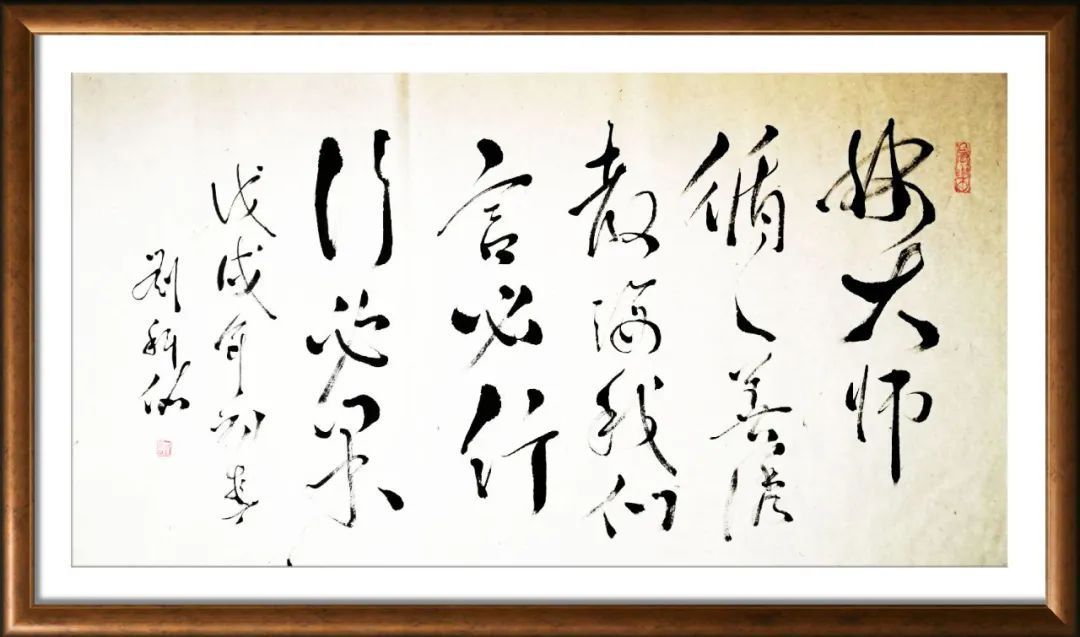 大师
循循善诱
教诲我们
言必行
行必果
戊戌年初春
劉